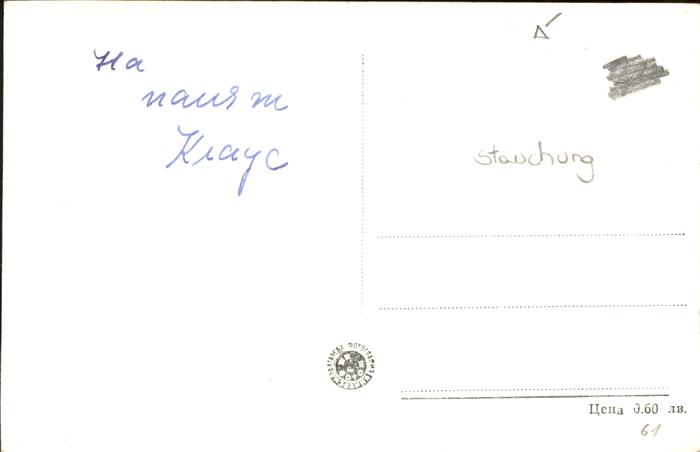 На
памят
Клаус
stauchung
БЪЛГАРСКА ФОТОГРАФИЯ
Цена 0.60 лв.
61